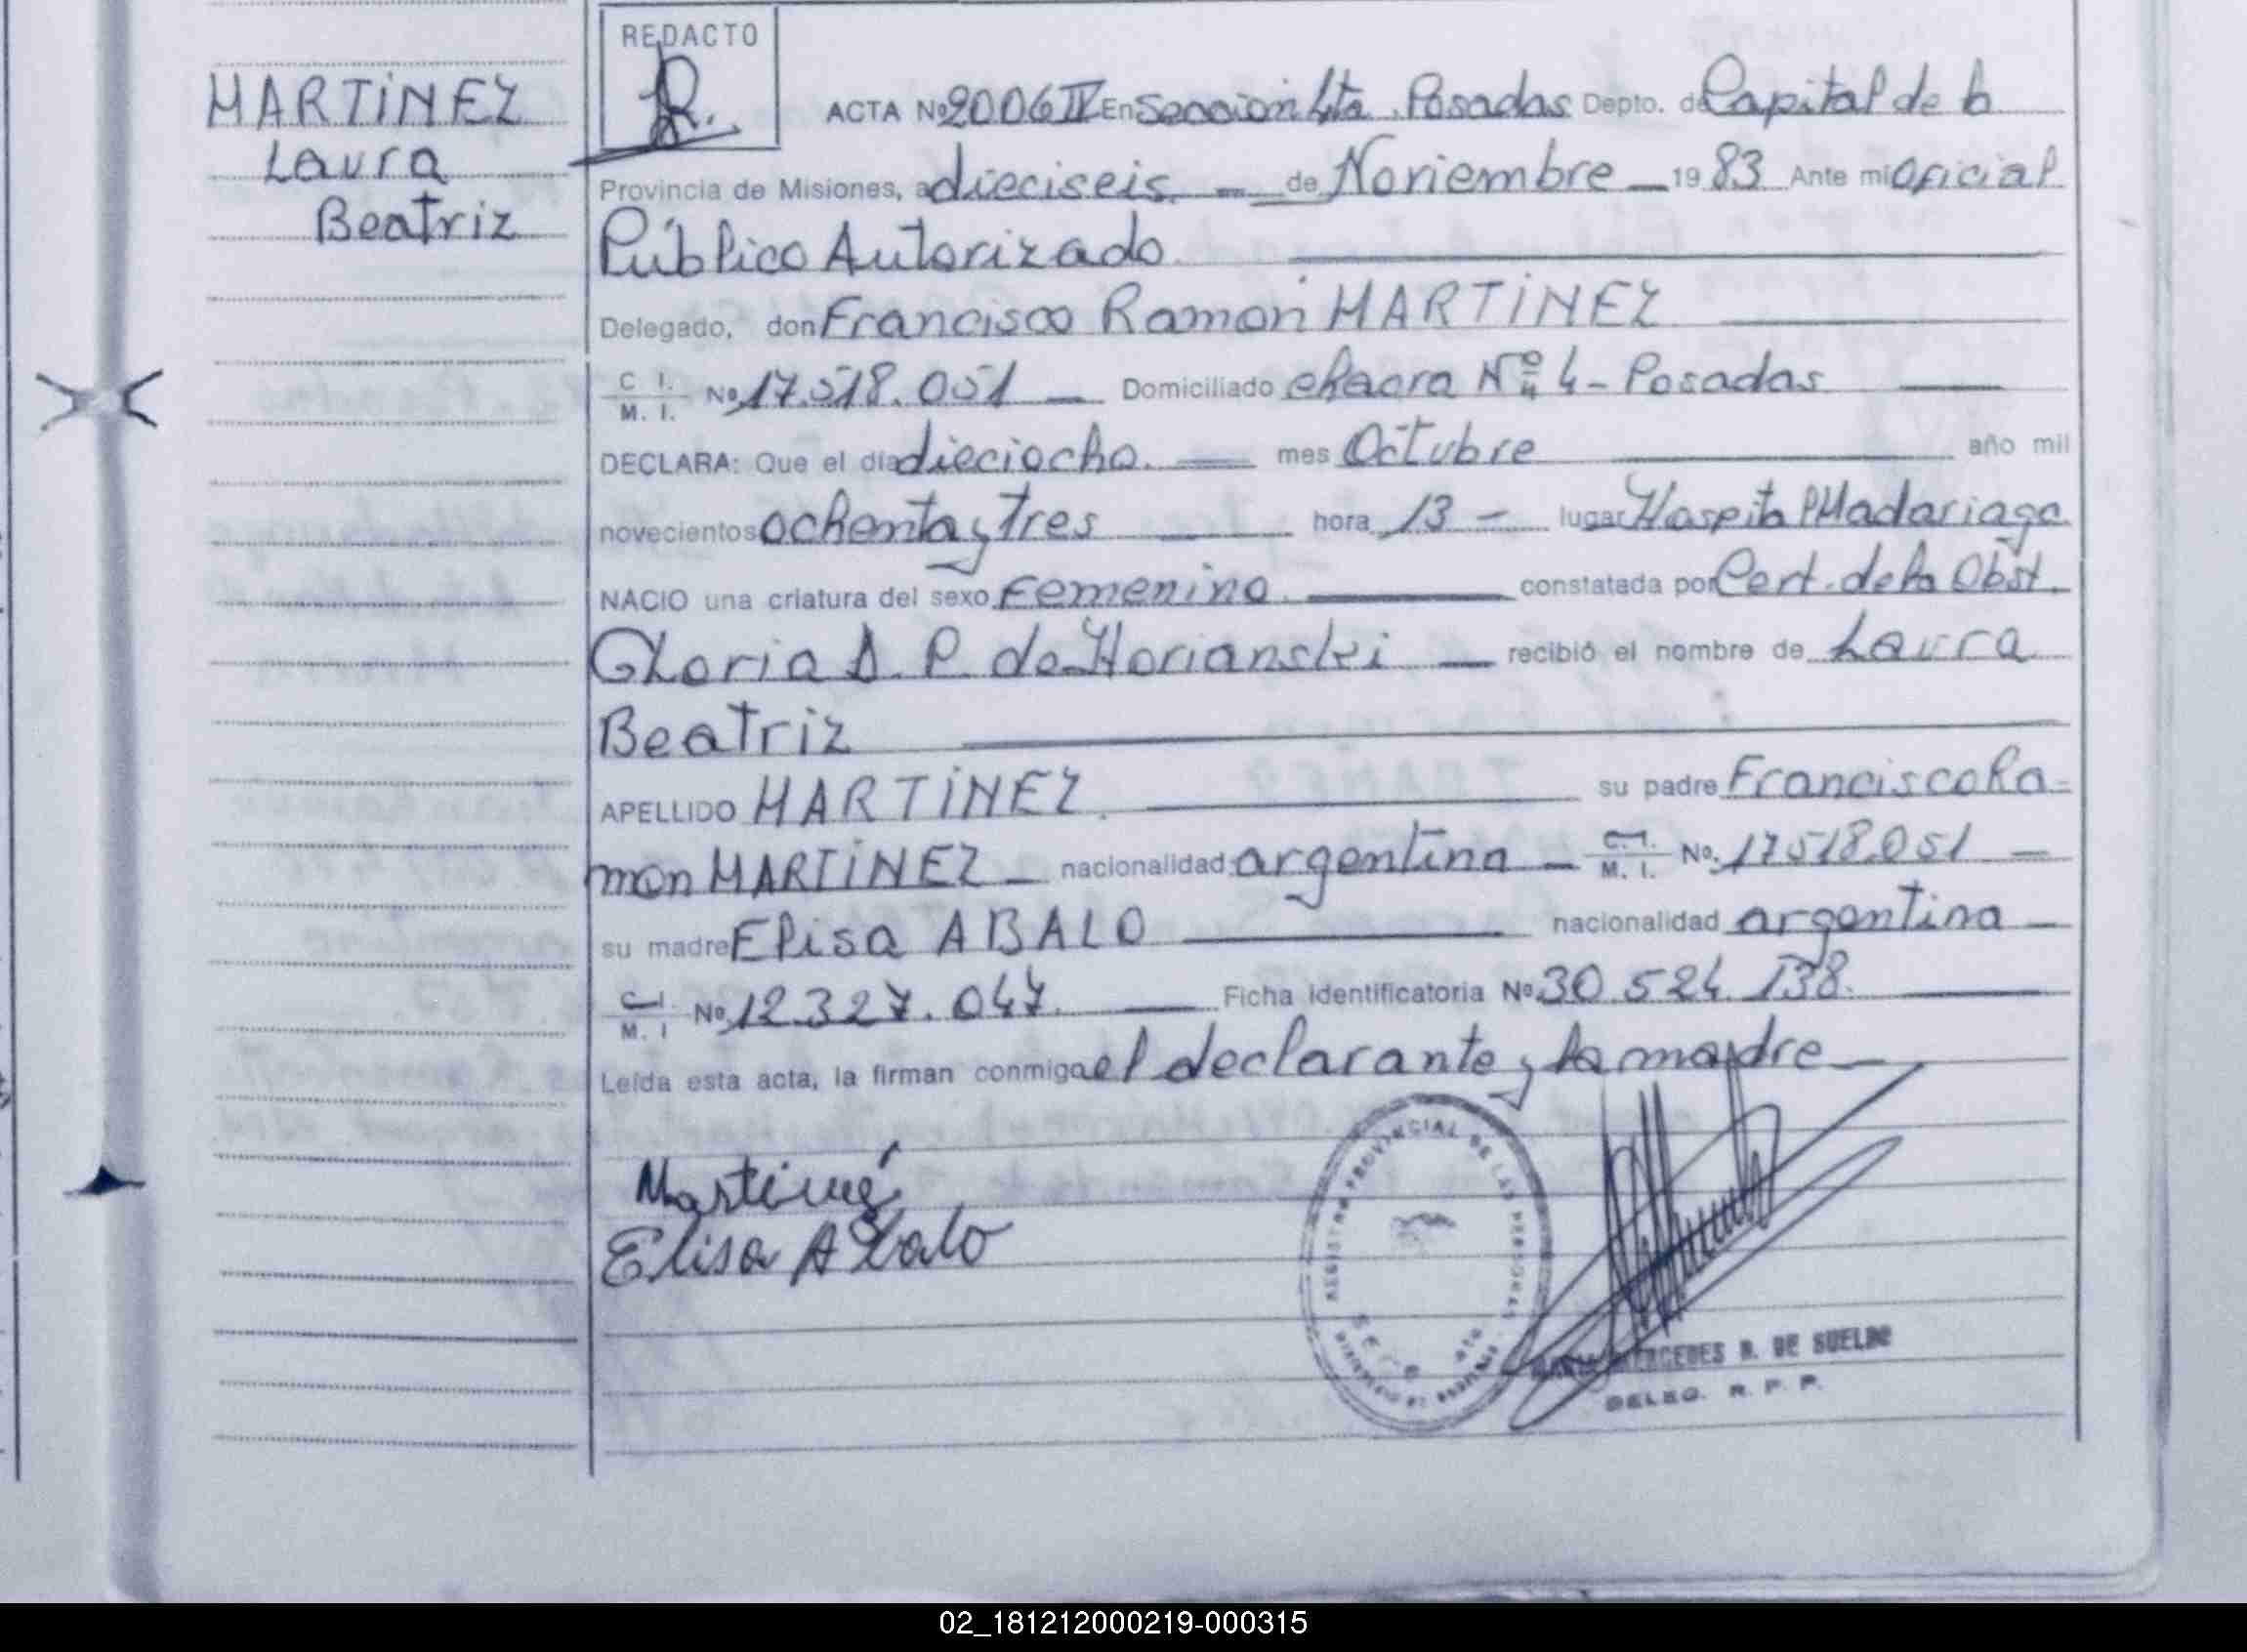 MARTINEZ
Laura
Beatriz
REDACTO
ACTA Nº 2006 IV En Sección 4ta. Posadas Depto. de Capital de la
Provincia de Misiones, a dieciseis. — de Noviembre — 19 83 Ante mi Oficial
Público Autorizado
Delegado, don Francisco Ramón MARTINEZ
C. I.
M. I. Nº 17.518.051 — Domiciliado chacra Nº 4 - Posadas
DECLARA: Que el día dieciocho. — mes Octubre — año mil
novecientos ochenta y tres — hora 13 — lugar Hospital Madariaga
NACIO una criatura del sexo Femenino. — constatada por Cert. de la Obst.
Gloria A. P. de Horianski — recibió el nombre de Laura
Beatriz
APELLIDO MARTINEZ. — su padre Francisco Ra-
mon MARTINEZ — nacionalidad argentina — C. I.
M. I. No. 17518.051 —
su madre Elisa ABALO — nacionalidad argentina —
C. I.
M. I Nº 12.327.047. — Ficha identificatoria Nº 30.524.138.
Leída esta acta, la firman conmigo el declarante y la madre —
Elisa Abalo
REGISTRO PROVINCIAL DE LAS PERSONAS
MERCEDES R. DE SUELDO
DELEG. R. P. P.
02_181212000219-000315